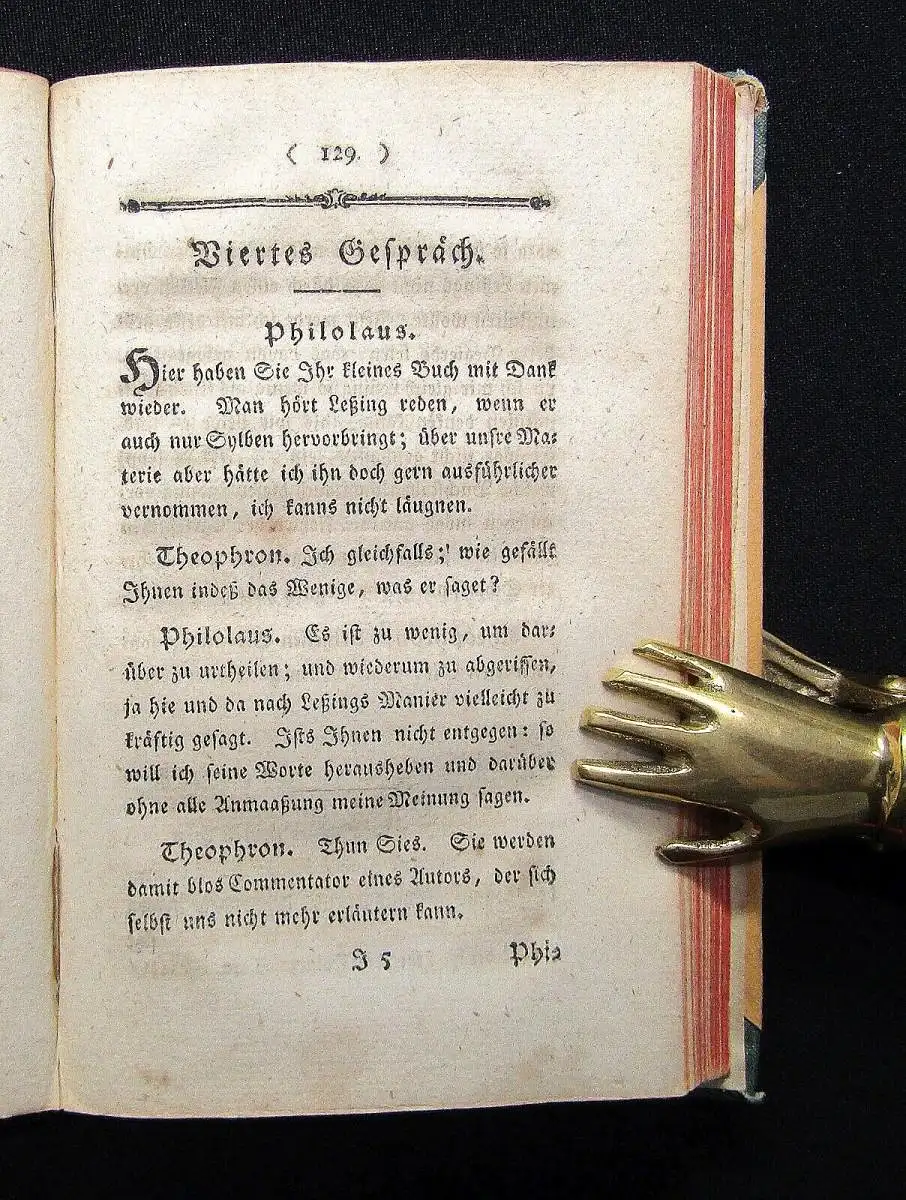 ( 129. )
Viertes Geſpräch.
Philolaus.
Hier haben Sie Ihr kleines Buch mit Dank
wieder. Man hört Leßing reden, wenn er
auch nur Sylben hervorbringt; über unſre Ma⸗
terie aber hätte ich ihn doch gern ausführlicher
vernommen, ich kanns nicht läugnen.
Theophron. Ich gleichfalls; wie gefällt
Ihnen indeß das Wenige, was er ſaget?
Philolaus. Es iſt zu wenig, um dar⸗
über zu urtheilen; und wiederum zu abgeriſſen,
ja hie und da nach Leßings Manier vielleicht zu
kräftig geſagt. Iſts Ihnen nicht entgegen: ſo
will ich ſeine Worte herausheben und darüber
ohne alle Anmaaßung meine Meinung ſagen.
Theophron. Thun Sies. Sie werden
damit blos Commentator eines Autors, der ſich
ſelbſt uns nicht mehr erläutern kann.
J 5 Phi⸗